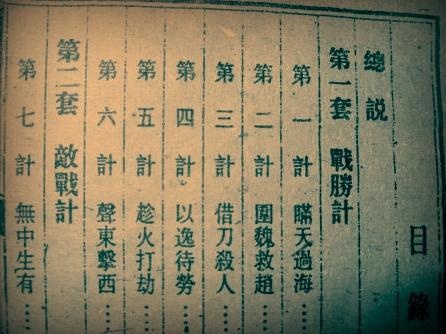 目錄
總説
第一套 戰勝計
第一計 瞞天過海……
第二計 圍魏救趙……
第三計 借刀殺人……
第四計 以逸待勞……
第五計 趁火打劫……
第六計 聲東擊西……
第二套 敵戰計
第七計 無中生有……